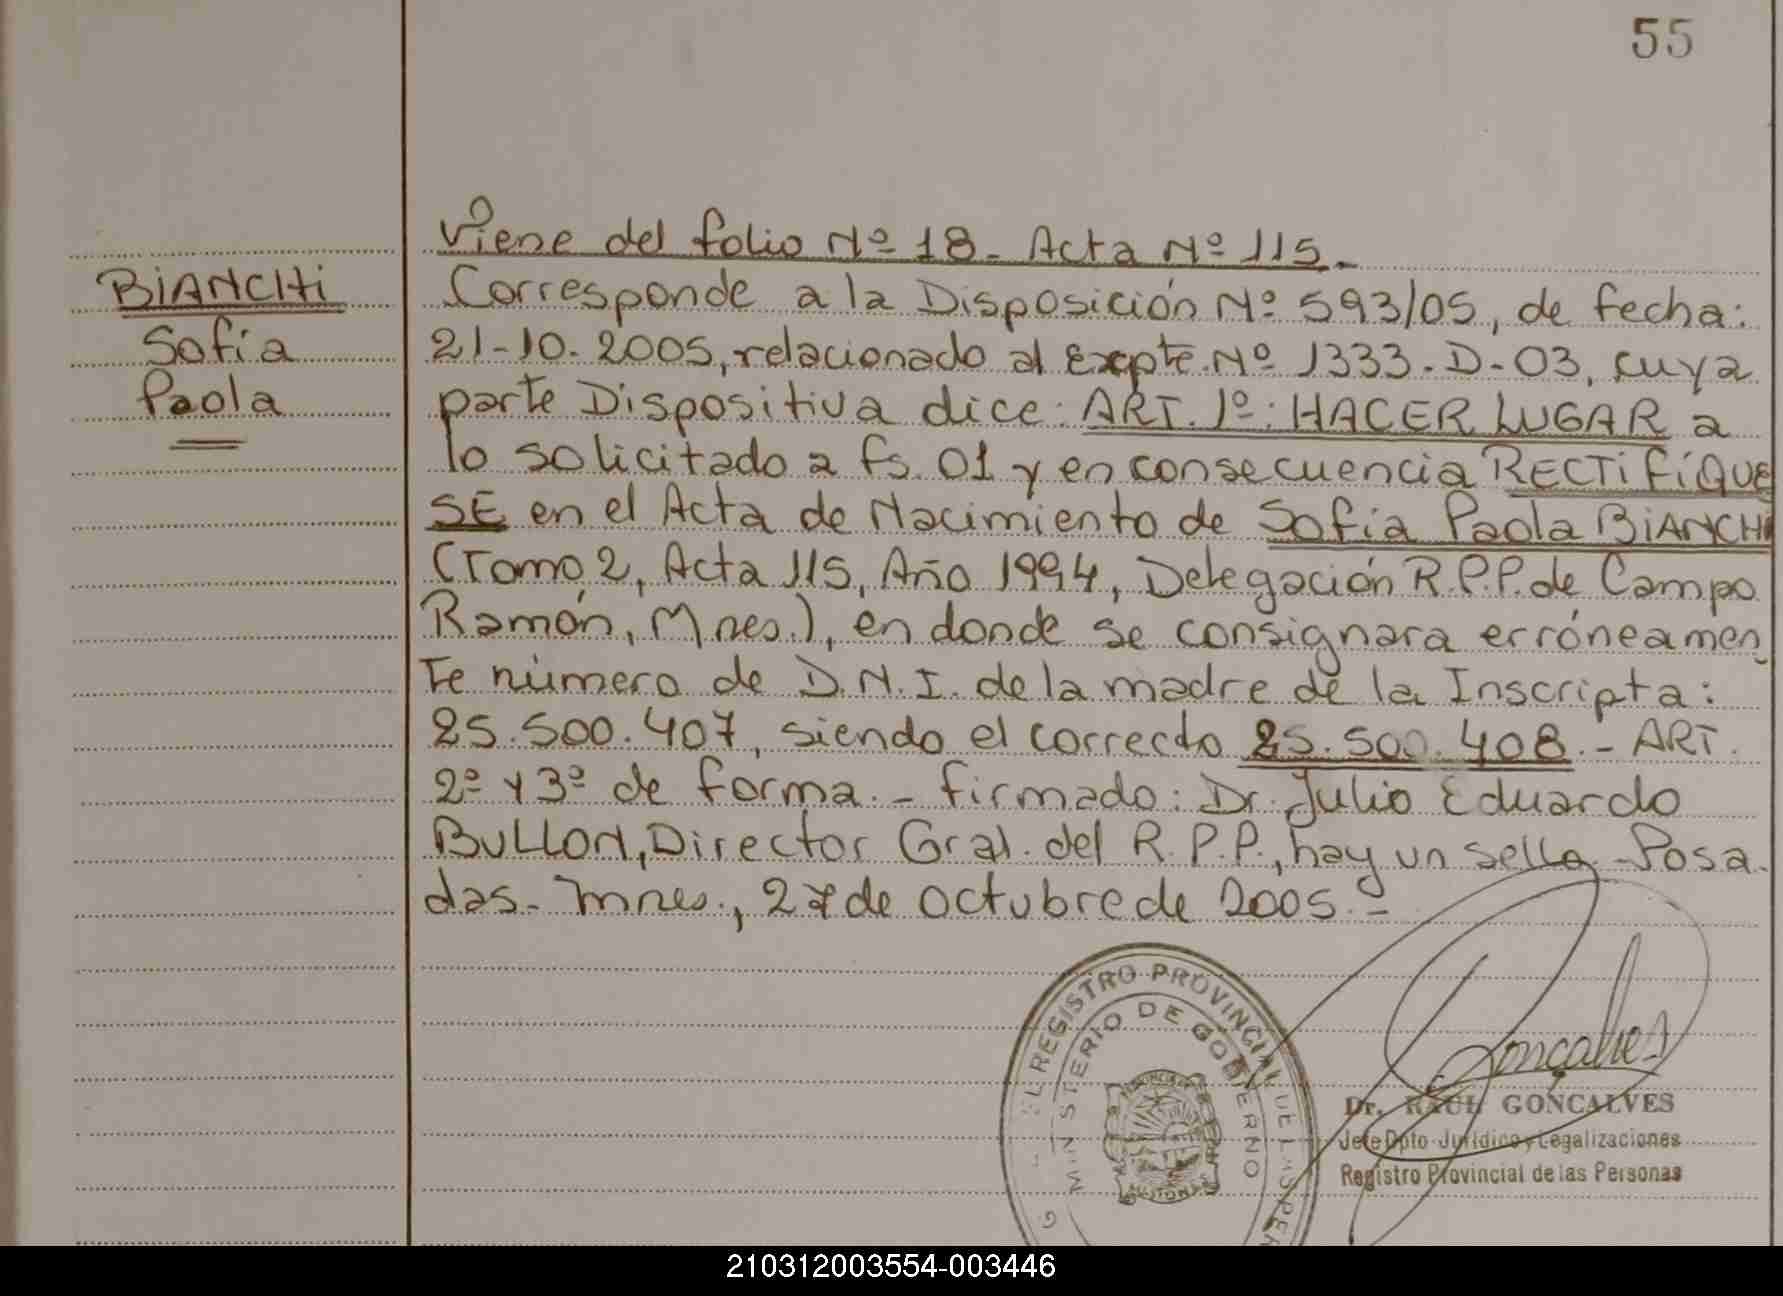 55
Viene del folio Nº 18. Acta Nº 115.
BIANCHI
Sofía
Paola
Corresponde a la Disposición Nº 593/05, de fecha:
21-10-2005, relacionado al Expte. Nº 1333-D-03, cuya
parte Dispositiva dice: ART. 1º: HACER LUGAR a
lo solicitado a fs. 01 y en consecuencia RECTIFÍQUE
SE en el Acta de Nacimiento de Sofía Paola BIANCHI
(Tomo 2, Acta 115, Año 1994, Delegación R.P.P. de Campo
Ramón, Mnes.), en donde se consignara erróneamen
te número de D.N.I. de la madre de la Inscripta:
25.500.407, siendo el correcto 25.500.408.- ART.
2º y 3º de forma.- firmado: Dr. Julio Eduardo
BULLON, Director Gral. del R.P.P., hay un sello - Posa
das- Mnes., 27 de octubre de 2005.-
REGISTRO PROVINCIAL DE LAS PER
MINISTERIO DE GOBIERNO
MISIONES
Gonçalves
Dr. RAUL GONÇALVES
Jefe Dpto Jurídico y Legalizaciones
Registro Provincial de las Personas
210312003554-003446